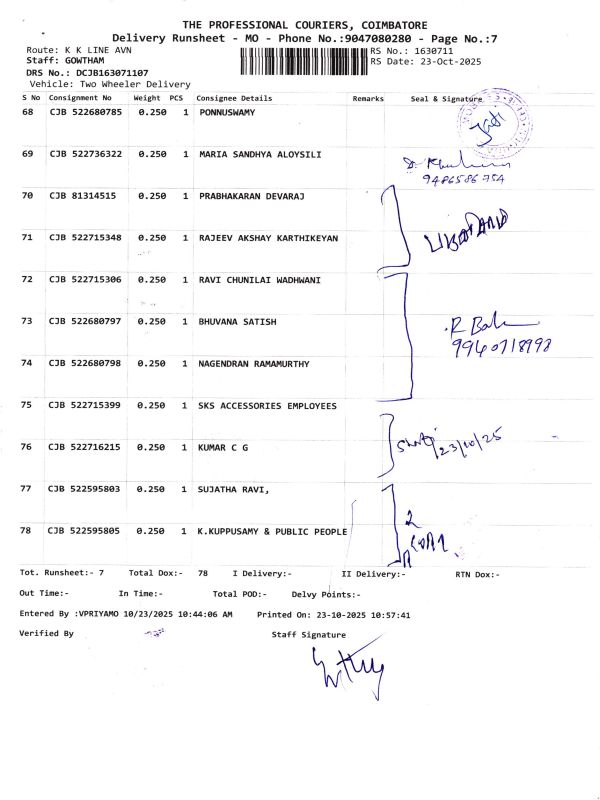 THE PROFESSIONAL COURIERS, COIMBATORE
Delivery Runsheet - MO - Phone No.:9047080280 - Page No.:7
Route: K K LINE AVN RS No.: 1630711
Staff: GOWTHAM RS Date: 23-Oct-2025
DRS No.: DCJB163071107
Vehicle: Two Wheeler Delivery
S No Consignment No Weight PCS Consignee Details Remarks Seal & Signature
68 CJB 522680785 0.250 1 PONNUSWAMY
69 CJB 522736322 0.250 1 MARIA SANDHYA ALOYSILI
9486586754
70 CJB 81314515 0.250 1 PRABHAKARAN DEVARAJ
71 CJB 522715348 0.250 1 RAJEEV AKSHAY KARTHIKEYAN
72 CJB 522715306 0.250 1 RAVI CHUNILAI WADHWANI
73 CJB 522680797 0.250 1 BHUVANA SATISH
9940718998
74 CJB 522680798 0.250 1 NAGENDRAN RAMAMURTHY
75 CJB 522715399 0.250 1 SKS ACCESSORIES EMPLOYEES
76 CJB 522716215 0.250 1 KUMAR C G 23/10/25
77 CJB 522595803 0.250 1 SUJATHA RAVI,
78 CJB 522595805 0.250 1 K.KUPPUSAMY & PUBLIC PEOPLE
Tot. Runsheet:- 7 Total Dox:- 78 I Delivery:- II Delivery:- RTN Dox:-
Out Time:- In Time:- Total POD:- Delvy Points:-
Entered By :VPRIYAMO 10/23/2025 10:44:06 AM Printed On: 23-10-2025 10:57:41
Verified By Staff Signature